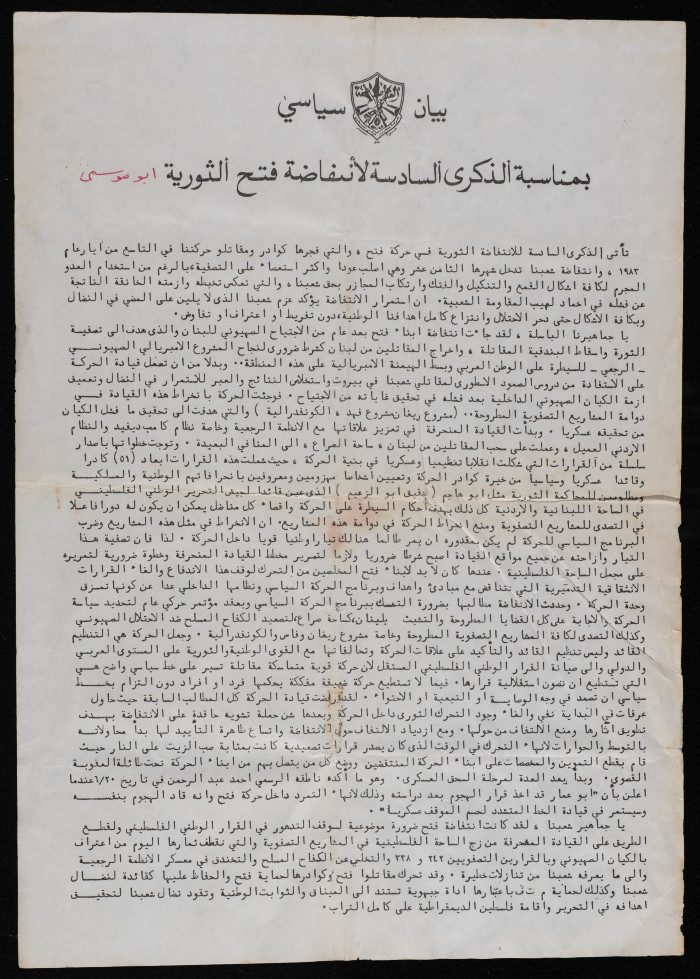 بيان سياسي
بمناسبة الذكرى السادسة لانتفاضة فتح الثورية ابو موسى
تأتي الذكرى السادسة للانتفاضة الثورية في حركة فتح ، والتي فجرها كوادر ومقاتلو حركتنا في التاسع من أيار عام
١٩٨٣ ، وانتفاضة شعبنا تدخل شهرها الثامن عشر وهي اصلب عودا واكثر استعصاء على التصفية، بالرغم من استخدام العدو
المجرم لكافة اشكال القمع والتنكيل والفتك وارتكاب المجازر بحق شعبنا ، والتي تعكس تخبطه وازمته الخانقة الناتجة
عن فشله في اخماد لهيب المقاومة الشعبية . ان استمرار الانتفاضة يؤكد عزم شعبنا الذي لا يلين على المضي في النضال
وبكافة الاشكال حتى دحر الاحتلال وانتزاع كامل اهدافنا الوطنية، دون تفريط او اعتراف او تفاوض .
يا جماهيرنا الباسلة ، لقد جاءت انتفاضة ابناء فتح بعد عام من الاجتياح الصهيوني للبنان والذي هدف الى تصفية
الثورة واسقاط البندقية المقاتلة ، واخراج المقاتلين من لبنان كشرط ضروري لنجاح المشروع الامبريالي الصهيوني
ـ الرجعي ـ للسيطرة على الوطن العربي وبسط الهيمنة الامبريالية على هذه المنطقة .. وبدلا من ان تعمل قيادة الحركة
على الاستفادة من دروس الصمود الاسطوري لمقاتلي شعبنا في بيروت واستخلاص النتائج والعبر للاستمرار في النضال وتعميق
ازمة الكيان الصهيوني الداخلية بعد فشله في تحقيق غاياته من الاجتياح . فوجئت الحركة بانخراط هذه القيادة في
دوامة المشاريع التصفوية المطروحة .. ( مشروع ريغان ، مشروع فهد ، الكونفدرالية ) والتي هدفت الى تحقيق ما فشل الكيان
من تحقيقه عسكريا . وبدأت القيادة المنحرفة في تعزيز علاقاتها مع الانظمة الرجعية وخاصة نظام كامب ديفيد والنظام
الاردني العميل ، وعملت على سحب المقاتلين من لبنان ، ساحة الصراع ، الى المنافي البعيدة . وتوجت خطواتها باصدار
سلسلة من القرارات التي شكلت انقلابا تنظيميا وعسكريا في بنية الحركة ، حيث شملت هذه القرارات ابعاد (٥١) كادرا
وقائدا عسكريا وسياسيا من خيرة كوادر الحركة وتعيين اشخاصا مهزومين ومعروفين بانحرافاتهم الوطنية والمسلكية
ومطلوبين للمحاكمة الثورية مثل ابو هاجم ( شقيق ابو الزعيم ) الذي عين قائدا لجيش التحرير الوطني الفلسطيني
في الساحة اللبنانية والاردنية كل ذلك بهدف احكام السيطرة على الحركة واقصاء كل مناضل يمكن ان يكون له دورا فاعلا
في التصدي للمشاريع التصفوية ومنع انخراط الحركة في دوامة هذه المشاريع . ان الانخراط في مثل هذه المشاريع وضرب
البرنامج السياسي للحركة لم يكن بمقدوره ان يمر طالما هنالك تيارا وطنيا قويا داخل الحركة . لذا فان تصفية هذا
التيار وازاحته عن جميع مواقع القيادة اصبح شرطا ضروريا ولازما لتمرير مخطط القيادة المنحرفة وخطوة ضرورية لتمريره
على مجمل الساحة الفلسطينية . عندها كان لا بد لابناء فتح المخلصين من التحرك لوقف هذا الاندفاع والغاء القرارات
الانشقاقية التدميرية التي تتناقض مع مبادئ واهداف وبرنامج الحركة السياسي ونظامها الداخلي عدا عن كونها تمزق
وحدة الحركة . وحددت الانتفاضة مطالبها بضرورة التمسك ببرنامج الحركة السياسي وبعقد مؤتمر حركي عام لتحديد سياسة
الحركة والاجابة على كل القضايا المطروحة والتشبث بلبنان، كساحة صراع، لتصعيد الكفاح المسلح ضد الاحتلال الصهيوني
وكذلك التصدي لكافة المشاريع التصفوية المطروحة وخاصة مشروع ريغان وفاس والكونفدرالية . وجعل الحركة هي التنظيم
القائد وليس تنظيم القائد والتأكيد على علاقات الحركة وتحالفاتها مع القوى الوطنية والثورية على المستوى العربي
والدولي والى صيانة القرار الوطني الفلسطيني المستقل لان حركة قوية متماسكة مقاتلة تسير على خط سياسي واضح هي
التي تستطيع ان تصون استقلالية قرارها . فيما لا تستطيع حركة ضعيفة مفككة يحكمها فرد او افراد دون التزام بخط
سياسي ان تصمد في وجه الوصاية او التبعية او الاحتواء . لقد رفضت قيادة الحركة كل المطالب السابقة حيث حاول
عرفات في البداية نفي والغاء وجود التحرك الثوري داخل الحركة وبعدها شن حملة تشويه حاقدة على الانتفاضة بهدف
تطويق اثارها ومنع الالتفاف من حولها . ومع ازدياد الالتفاف حول الانتفاضة واتساع ظاهرة التأييد لها بدأ محاولاته
بالتوسط والحوارات لانهاء التحرك في الوقت الذي كان يصدر قرارات تصعيدية كانت بمثابة صب الزيت على النار حيث
قام بقطع التموين والمخصصات على ابناء الحركة المنتفضين ووضع كل من يتصل بهم من ابناء الحركة تحت طائلة العقوبة
القصوى . وبدأ يعد العدة لمرحلة الحسم العسكري . وهو ما أكده ناطقه الرسمي احمد عبد الرحمن في تاريخ ٦/٢٠ عندما
اعلن بأن "ابو عمار قد اخذ قرار الهجوم بعد دراسته وذلك لانهاء التمرد داخل حركة فتح وانه قاد الهجوم بنفسه
وسيستمر في قيادة الخط المتشدد لحسم الموقف عسكريا" .
يا جماهير شعبنا ، لقد كانت انتفاضة فتح ضرورة موضوعية لوقف التدهور في القرار الوطني الفلسطيني ولقطع
الطريق على القيادة المنحرفة من زج الساحة الفلسطينية في المشاريع التصفوية والتي نقطف ثمارها اليوم من اعتراف
بالكيان الصهيوني وبالقرارين التصفويين ٢٤٢ و ٣٣٨ والتخلي عن الكفاح المسلح والتخندق في معسكر الانظمة الرجعية
والى ما يعرفه شعبنا من تنازلات خطيرة . وقد تحرك مقاتلوا فتح وكوادرها لحماية فتح والحفاظ عليها كقائدة لنضال
شعبنا وكذلك لحماية م ت ف باعتبارها اداة جبهوية تستند الى الميثاق والثوابت الوطنية وتقود نضال شعبنا لتحقيق
اهدافه في التحرير واقامة فلسطين الديمقراطية على كامل التراب .